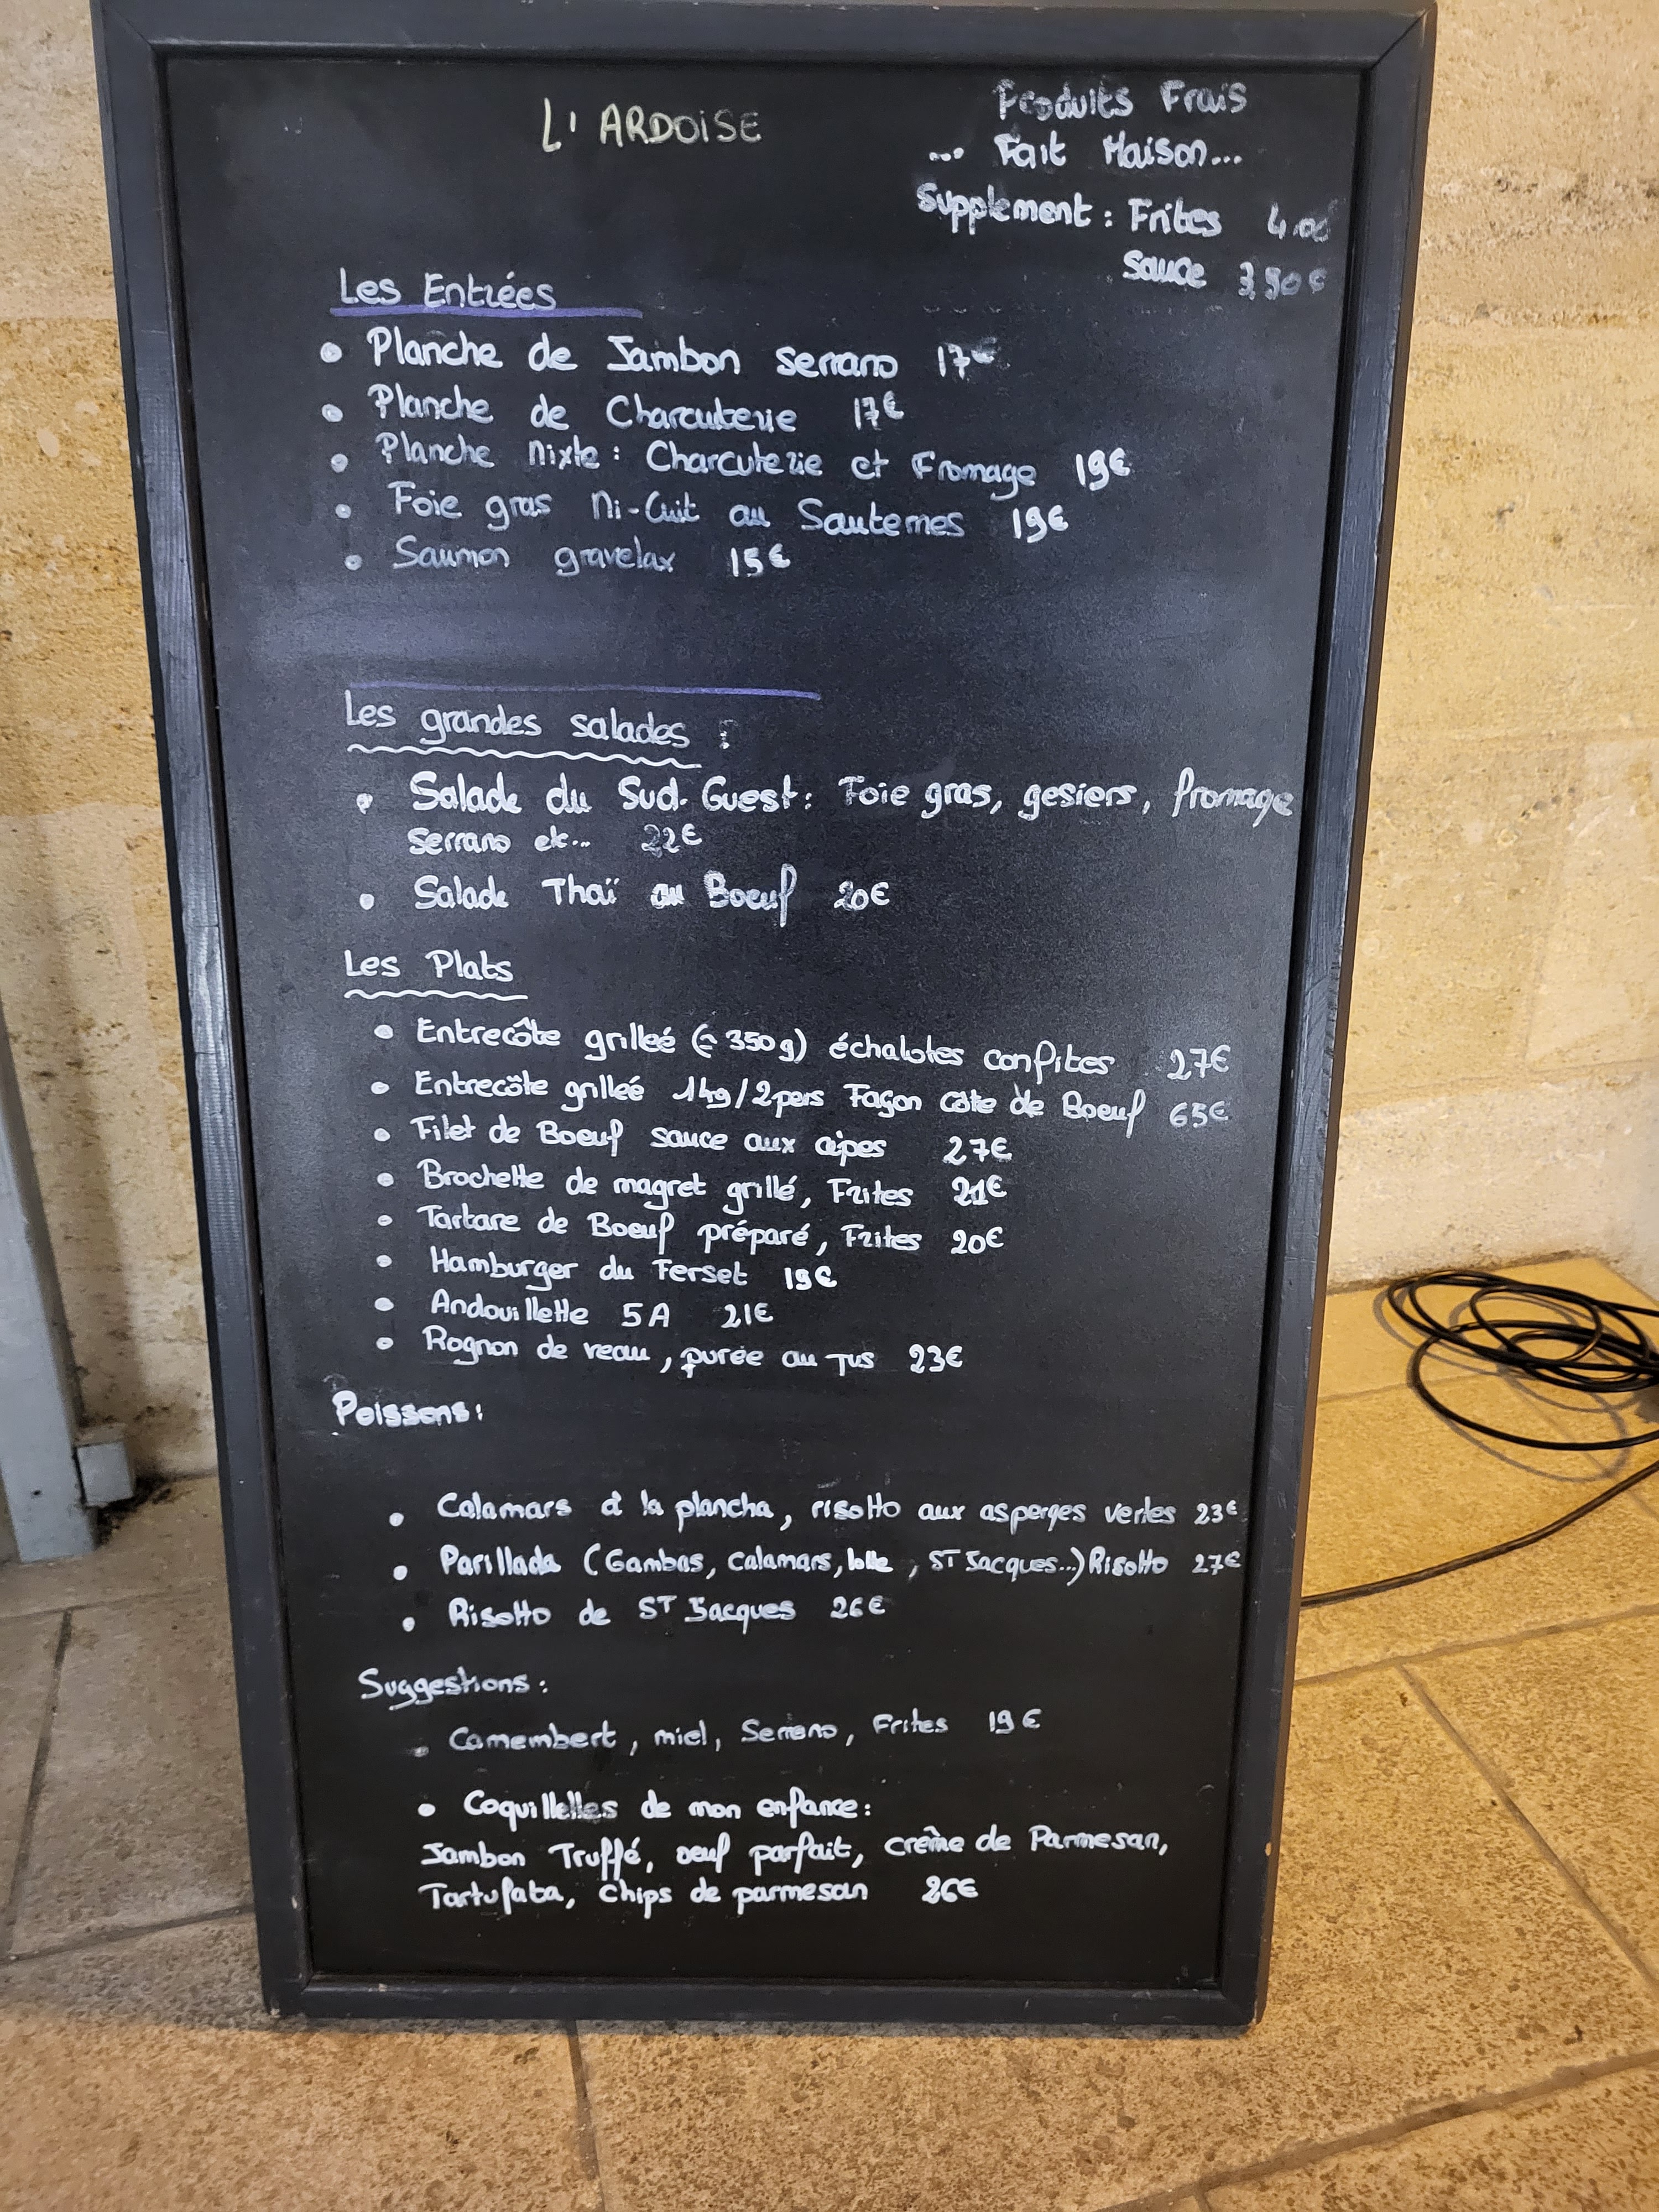 L' ARDOISE
Produits Frais
... Fait Maison...
Supplement : Frites 4.00€
Sauce 3,90€
Les Entrées
• Planche de Jambon Serrano 17€
• Planche de Charcuterie 17€
• Planche Mixte : Charcuterie et Fromage 19€
• Foie gras Mi-Cuit au Sauternes 19€
• Saumon gravelax 15€
Les grandes salades :
• Salade du Sud-Ouest : Foie gras, gesiers, fromage
Serrano etc... 22€
• Salade Thaï au Boeuf 20€
Les Plats
• Entrecôte grilleé (≃ 350g) échalotes confites 27€
• Entrecôte grilleé 1kg/2pers Façon côte de Boeuf 65€
• Filet de Boeuf sauce aux cèpes 27€
• Brochette de magret grillé, Frites 21€
• Tartare de Boeuf préparé, Frites 20€
• Hamburger du Ferset 19€
• Andouillette 5A 21€
• Rognon de veau, purée au jus 23€
Poissons :
• Calamars à la plancha, risotto aux asperges vertes 23€
• Parillada (Gambas, calamars, lotte, ST Jacques...) Risotto 27€
• Risotto de ST Jacques 26€
Suggestions :
• Camembert, miel, Serrano, Frites 19€
• Coquillettes de mon enfance :
Jambon Truffé, oeuf parfait, crème de Parmesan,
Tartufata, Chips de parmesan 26€